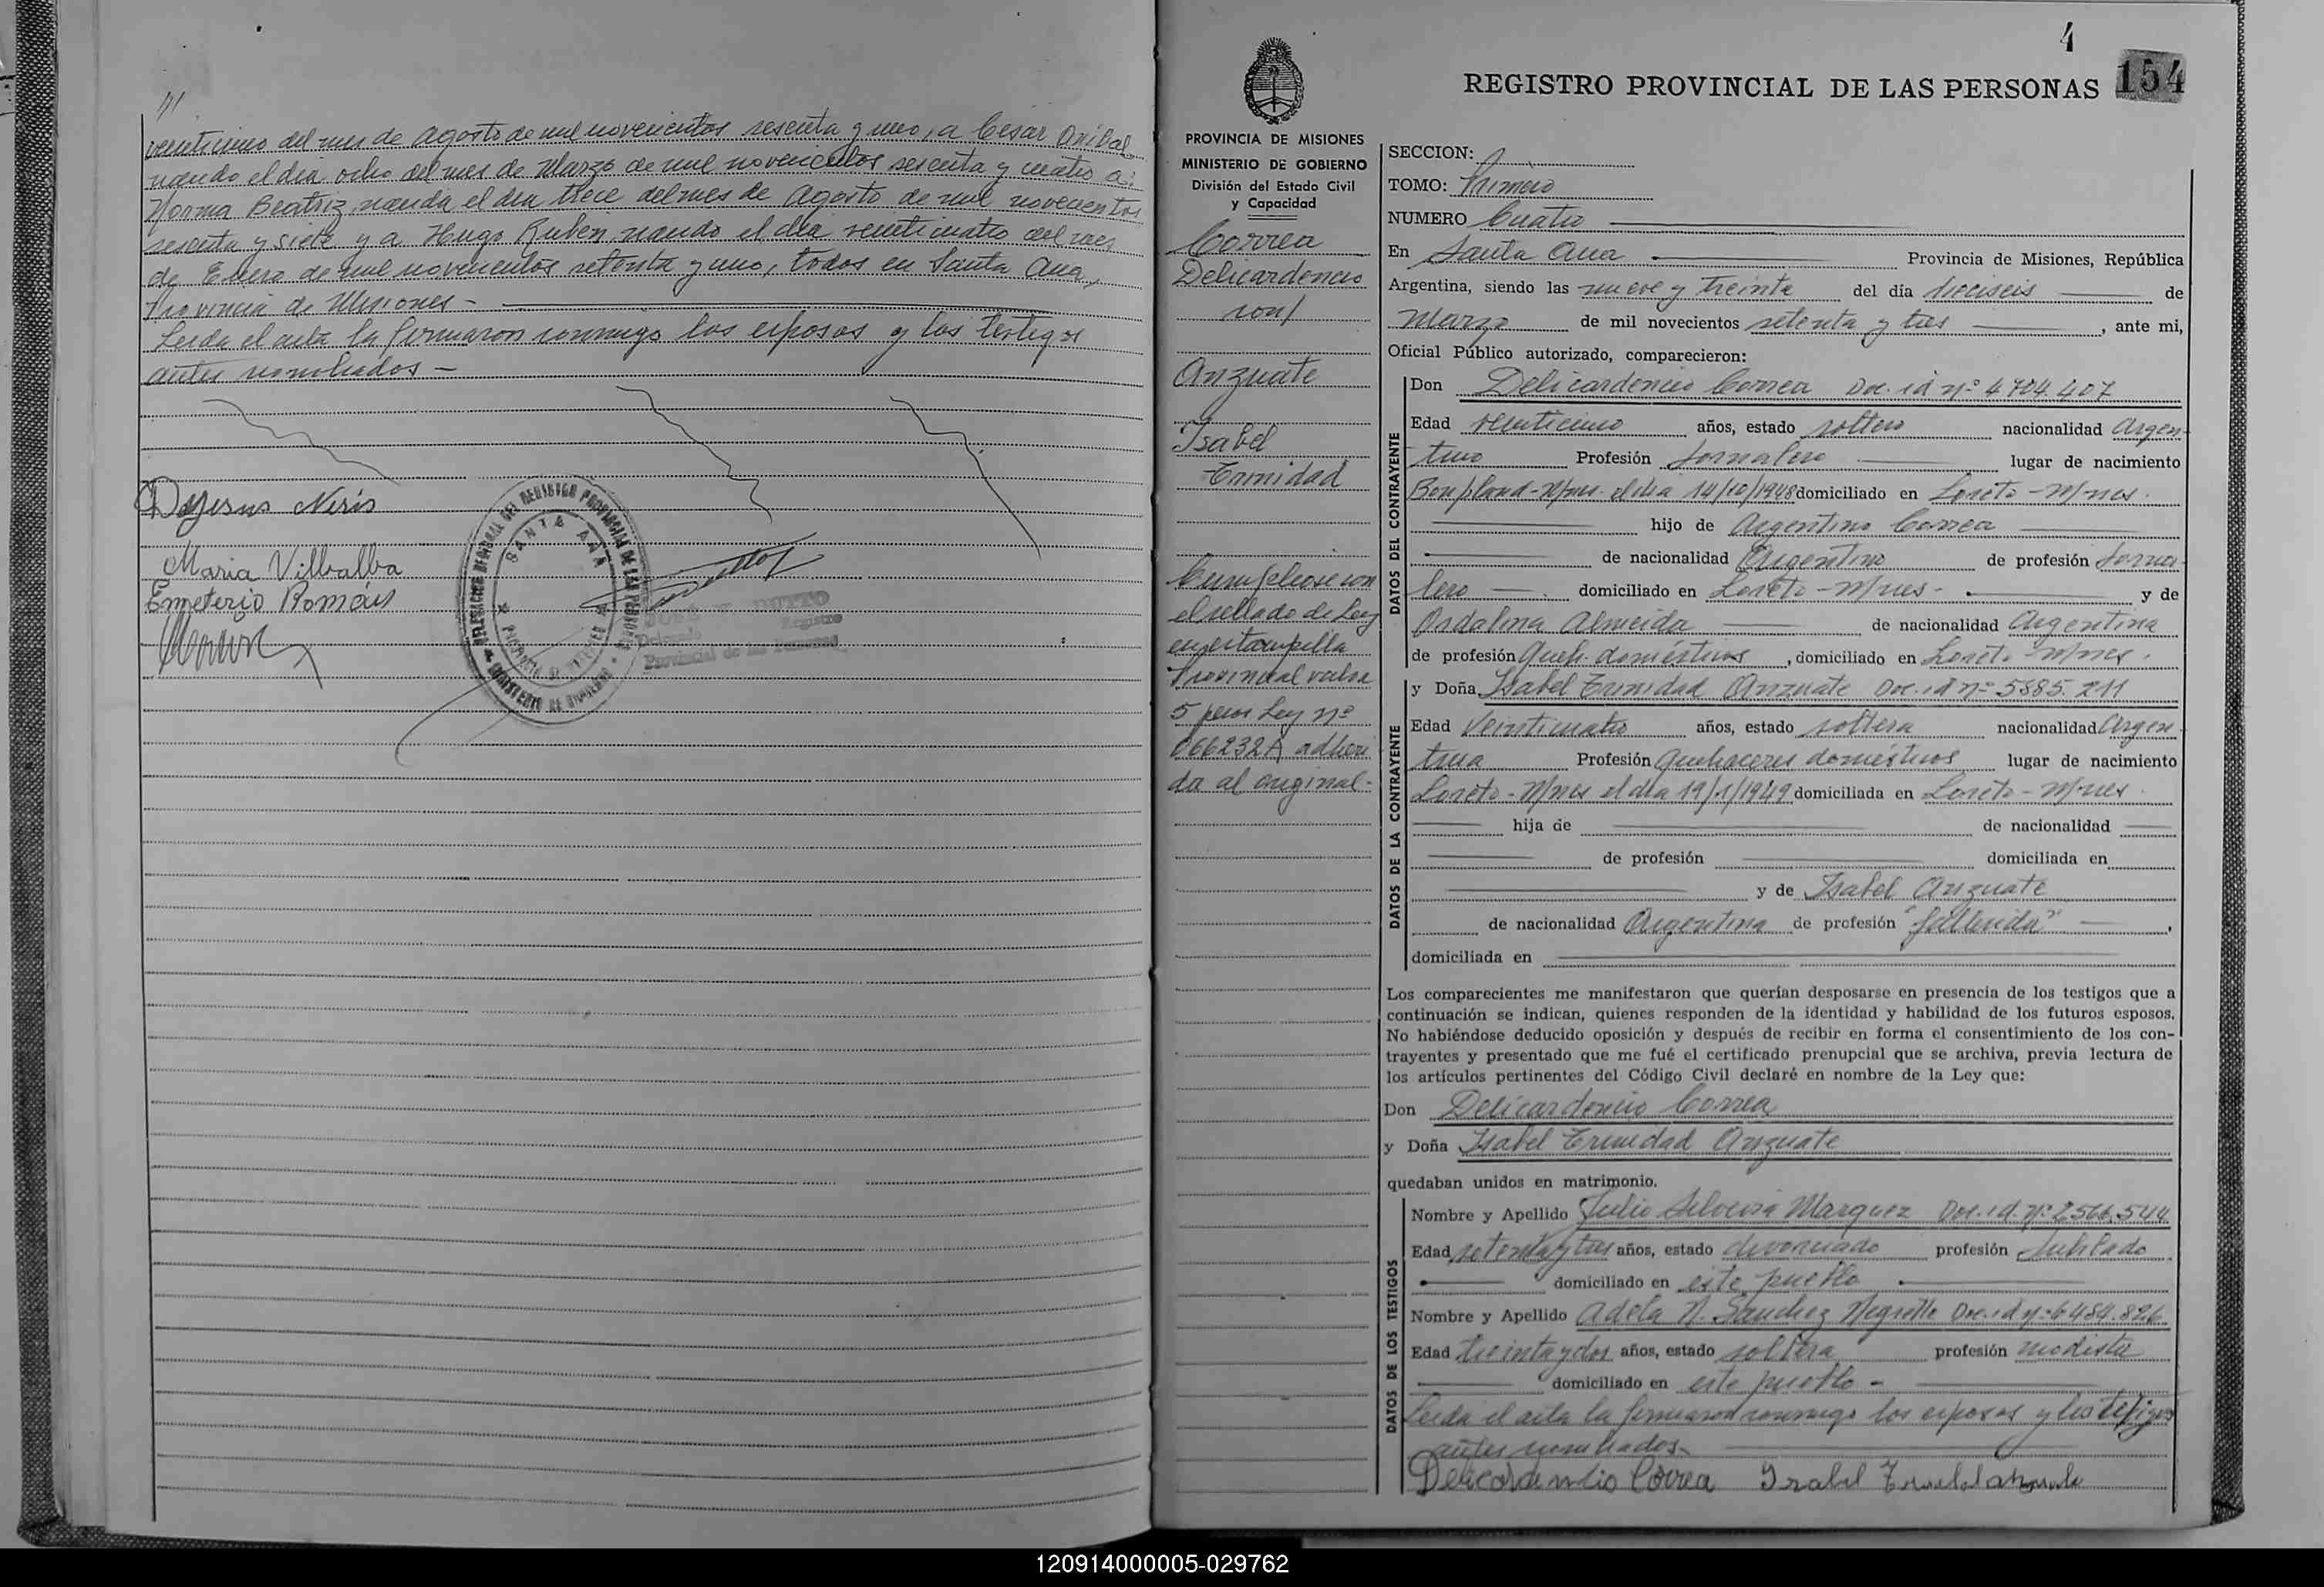 veinticinco del mes de Agosto de mil novecientos sesenta y uno, a Cesar Anibal
nacido el día ocho del mes de Marzo de mil novecientos sesenta y cuatro a:
Norma Beatriz, nacida el dia trece del mes de Agosto de mil novecientos
sesenta y siete y a Hugo Ruben, nacido el dia veinticuatro del mes
de Enero de mil novecientos setenta y uno, todos en Santa Ana,
Provincia de Misiones -
Leida el acta la firmaron conmigo los esposos y los testigos
antes nombrados -
Neris
Maria Villalba
Emeterio Román
DELEGACION REGIONAL DEL REGISTRO PROVINCIAL DE LAS PERSONAS
SANTA ANA
PROVINCIA DE MISIONES
MINISTERIO DE GOBIERNO
Delegado Registro
Provincial de las Personas
4
REGISTRO PROVINCIAL DE LAS PERSONAS 154
PROVINCIA DE MISIONES
MINISTERIO DE GOBIERNO
División del Estado Civil
y Capacidad
Correa
Delicardencio
con/
Anzuate
Isabel
Trinidad
Cumpliose con
el sellado de Ley
en estampilla
Provincial valor
5 pesos Ley nº
066232A adheri
da al original -
SECCION: 1
TOMO: Primero
NUMERO Cuatro
En Santa Ana Provincia de Misiones, República
Argentina, siendo las nueve y treinta del día dieciseis de
Marzo de mil novecientos setenta y tres, ante mi,
Oficial Público autorizado, comparecieron:
DATOS DEL CONTRAYENTE
Don Delicardencio Correa Doc. id nº 4704.407
Edad veinticinco años, estado soltero nacionalidad Argen-
tino Profesión Jornalero lugar de nacimiento
Bonpland - Mnes. el dia 14/10/1948 domiciliado en Loreto - Mnes.
hijo de Argentino Correa
de nacionalidad Argentino de profesión Jorna-
lero domiciliado en Loreto - Mnes - y de
Ordalina Almeida de nacionalidad Argentina
de profesión Queh. domésticos, domiciliado en Loreto - Mnes.
DATOS DE LA CONTRAYENTE
y Doña Isabel Trinidad Anzuate Doc. id nº 5885.211
Edad Veinticuatro años, estado soltera nacionalidad Argen-
tina Profesión Quehaceres domésticos lugar de nacimiento
Loreto - Mnes el dia 19/1/1949 domiciliada en Loreto - Mnes.
hija de de nacionalidad
de profesión domiciliada en
y de Isabel Anzuate
de nacionalidad Argentina de profesión "fallecida",
domiciliada en
Los comparecientes me manifestaron que querían desposarse en presencia de los testigos que a
continuación se indican, quienes responden de la identidad y habilidad de los futuros esposos.
No habiéndose deducido oposición y después de recibir en forma el consentimiento de los con-
trayentes y presentado que me fué el certificado prenupcial que se archiva, previa lectura de
los artículos pertinentes del Código Civil declaré en nombre de la Ley que:
Don Delicardencio Correa
y Doña Isabel Trinidad Anzuate
quedaban unidos en matrimonio.
DATOS DE LOS TESTIGOS
Nombre y Apellido Julio Silveira Marquez Doc. id. nº 2566.544
Edad setenta y tres años, estado divorciado profesión Jubilado
domiciliado en este pueblo
Nombre y Apellido Adela N. Sanchez Negrette Doc. id nº 6484.826
Edad treinta y dos años, estado soltera profesión modista
domiciliado en este pueblo -
Leida el acta la firmaron conmigo los esposos y los testigos
antes nombrados -
Delicardencio Correa Isabel Trinidad Anzuate
120914000005-029762